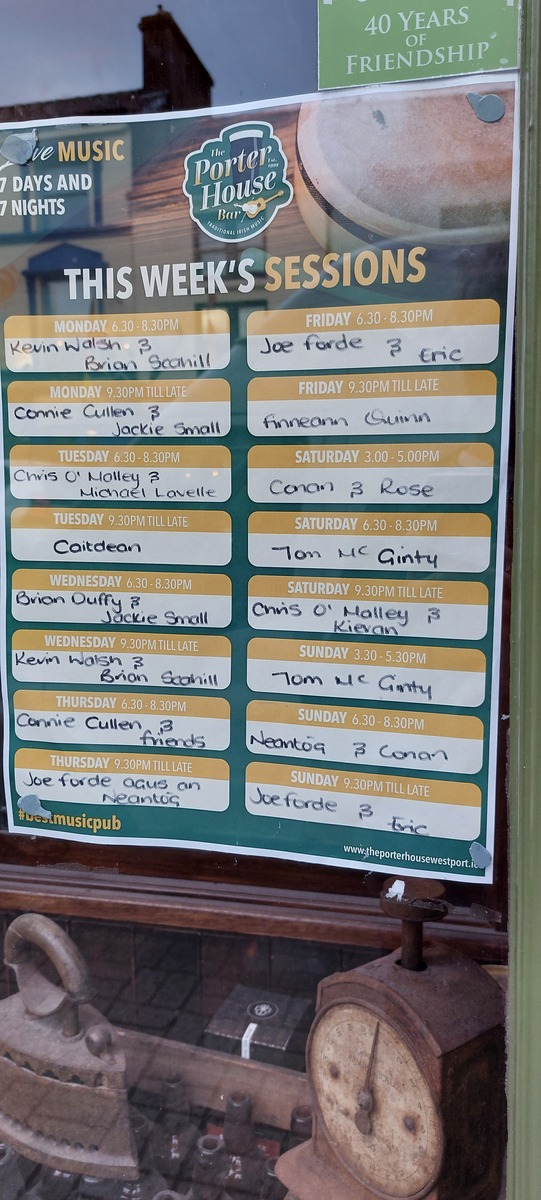 40 YEARS
OF
FRIENDSHIP
MUSIC
7 DAYS AND
7 NIGHTS
The
Porter
House
Bar
TRADITIONAL IRISH MUSIC
THIS WEEK'S SESSIONS
MONDAY 6.30 - 8.30PM
Kevin Walsh &
Brian Scahill
MONDAY 9.30PM TILL LATE
Connie Cullen &
Jackie Small
TUESDAY 6.30 - 8.30PM
Chris O'Malley &
Michael Lavelle
TUESDAY 9.30PM TILL LATE
Caitdean
WEDNESDAY 6.30 - 8.30PM
Brian Duffy &
Jackie Small
WEDNESDAY 9.30PM TILL LATE
Kevin Walsh &
Brian Scahill
THURSDAY 6.30 - 8.30PM
Connie Cullen &
friends
THURSDAY 9.30PM TILL LATE
Joe forde agus an
Neantóg
FRIDAY 6.30 - 8.30PM
Joe forde &
Eric
FRIDAY 9.30PM TILL LATE
finneann Quinn
SATURDAY 3.00 - 5.00PM
Conan & Rose
SATURDAY 6.30 - 8.30PM
Tom Mc Ginty
SATURDAY 9.30PM TILL LATE
Chris O'Malley &
Kieran
SUNDAY 3.30 - 5.30PM
Tom Mc Ginty
SUNDAY 6.30 - 8.30PM
Neantóg & Conan
SUNDAY 9.30PM TILL LATE
Joe forde &
Eric
#bestmusicpub
www.theporterhousewestport.ie